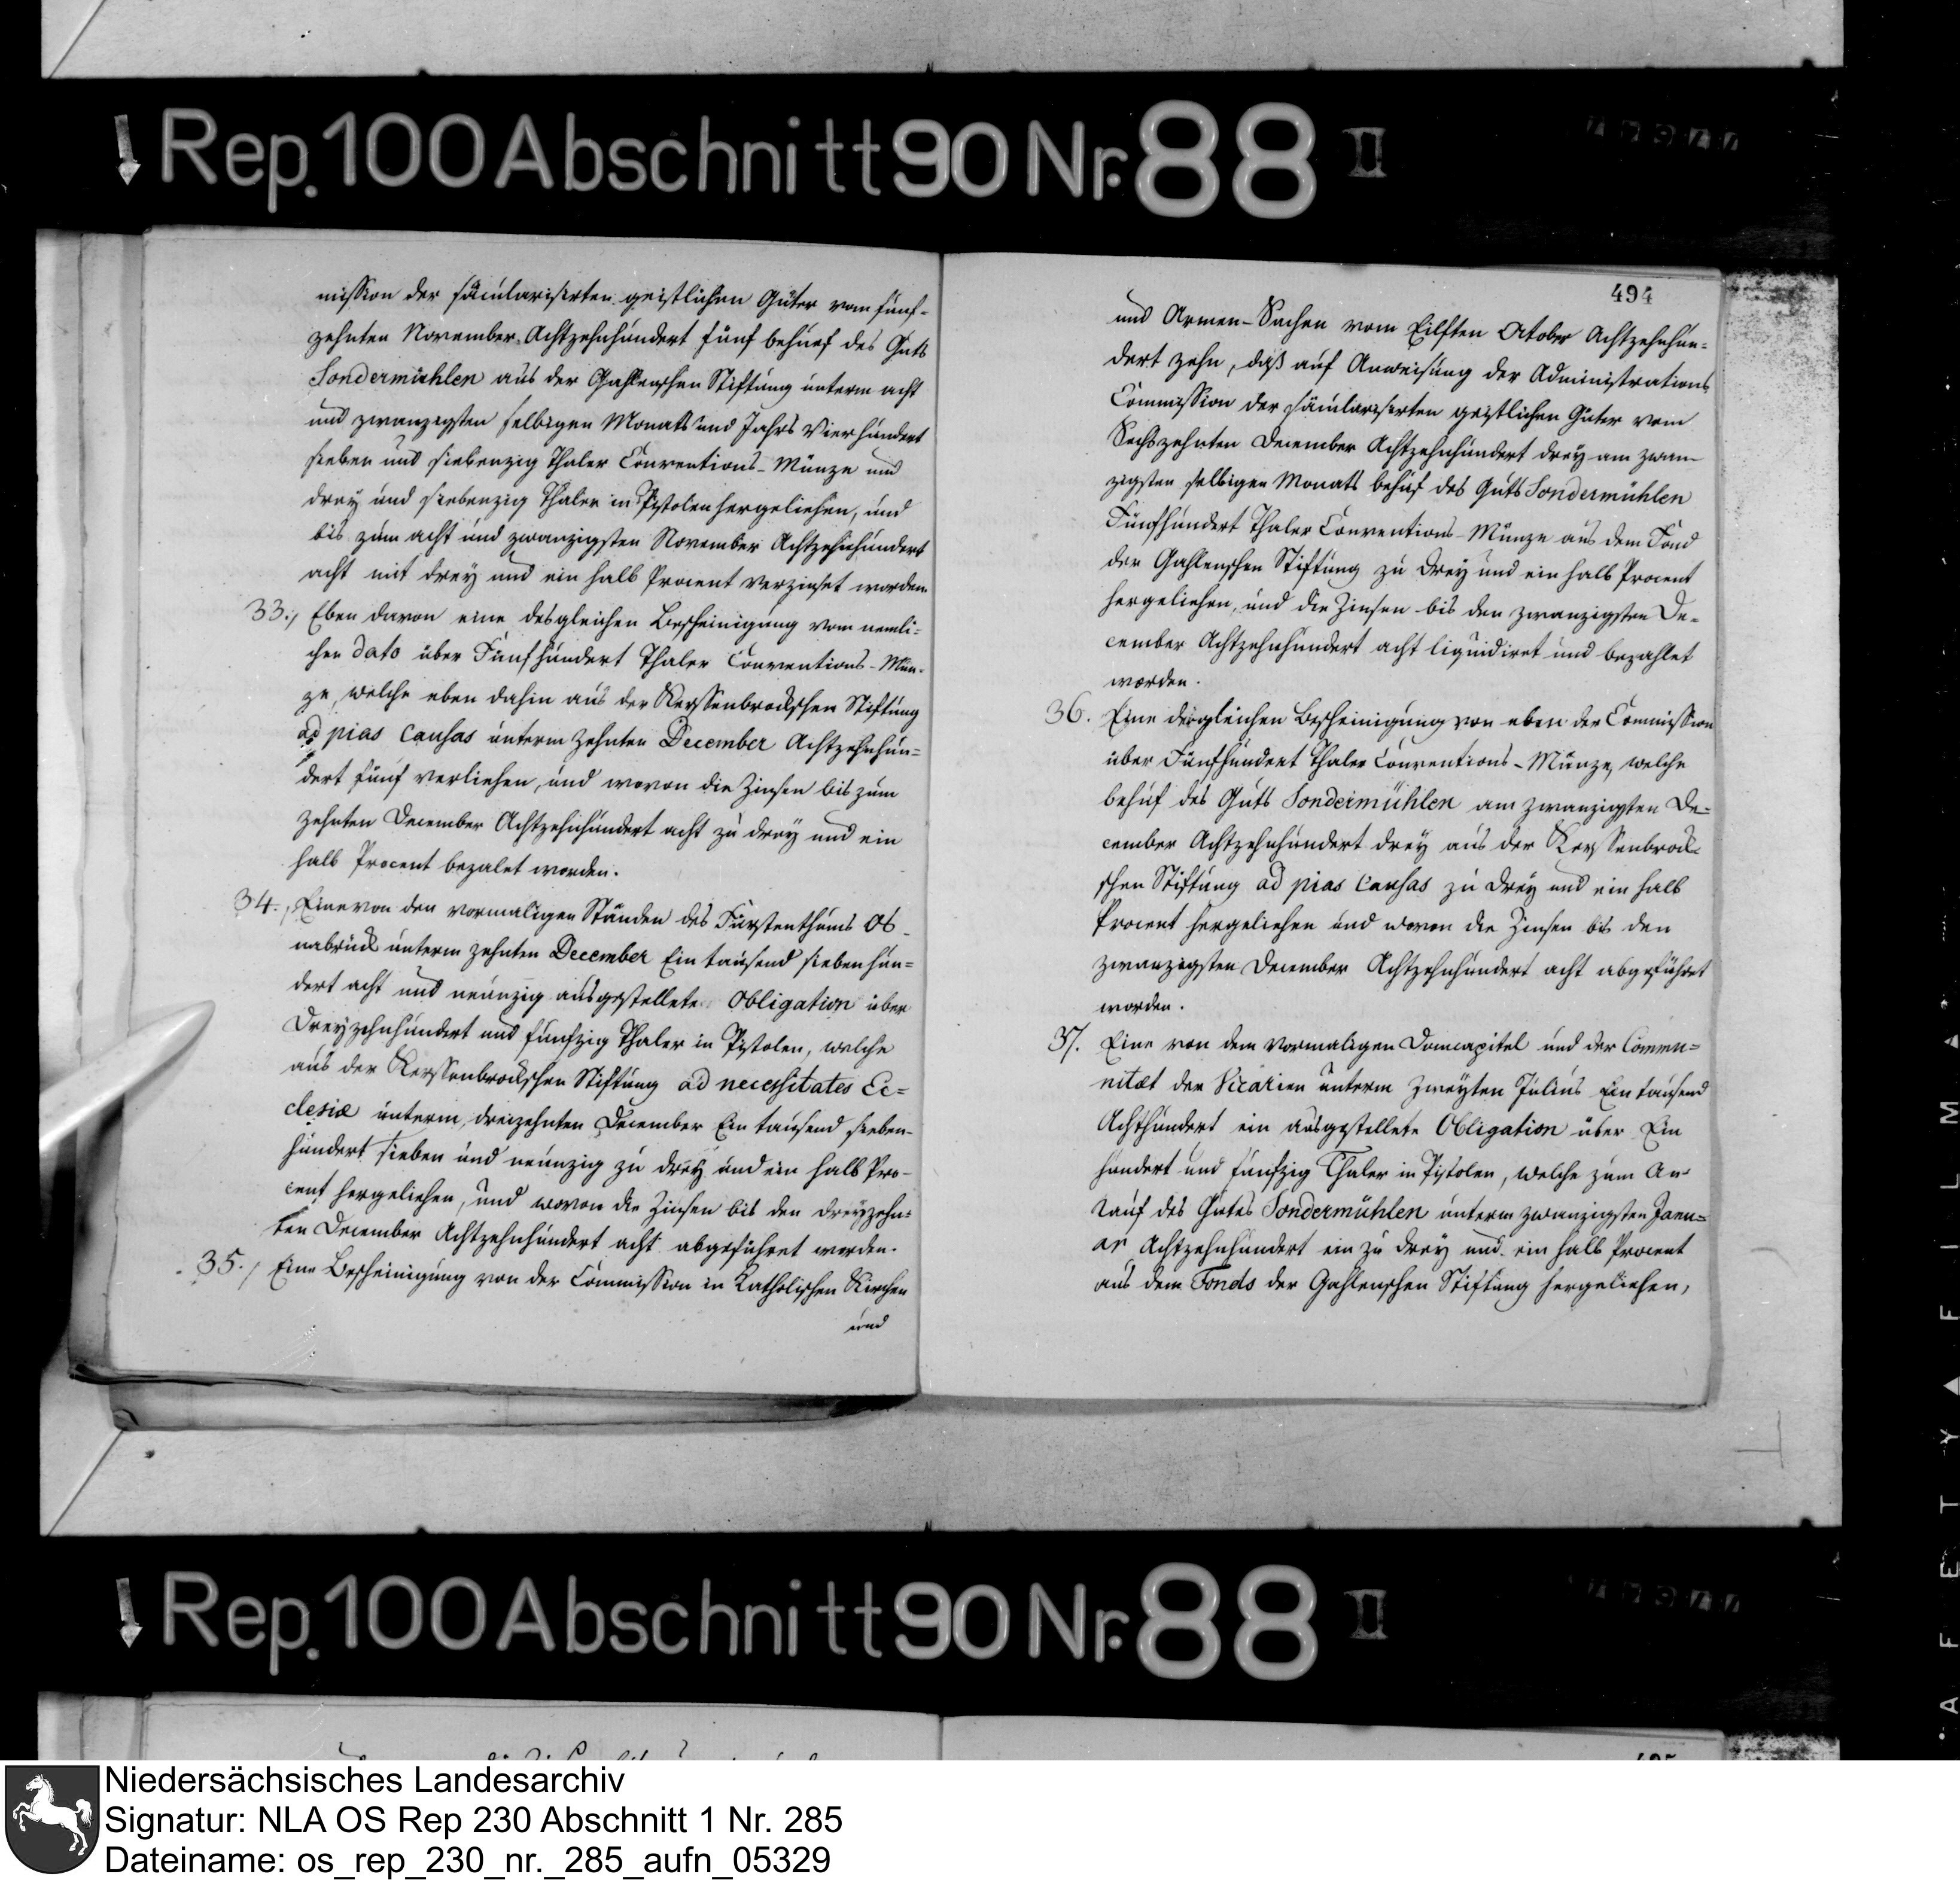 Rep. 100 Abschnitt 90 Nr. 88 II
mission der säcularisirten geistlichen Güter vom fünf-
zehnten November Achtzehnhundert fünf behuef des Guts
Sondermühlen aus der Gahlenschen Stiftung unterm acht
und zwanzigsten selbigen Monats und Jahrs Vierhundert
sieben und siebenzig Thaler Conventions-Münze und
drey und siebenzig Thaler in Pistolen hergeliehen, und
bis zum acht und zwanzigsten November Achtzehnhundert
acht mit drey und ein halb Procent verzinset worden
33., Eben davon eine desgleichen Bescheinigung vom nemli-
chen dato über Fünfhundert Thaler Conventions-Mün-
ze, welche eben dahin aus der Kerssenbrockschen Stiftung
ad pias Causas unterm zehnten December Achtzehnhun=
dert fünf verliehen, und wovon die Zinsen bis zum
zehnten December Achtzehnhundert acht zu drey und ein
halb Procent bezalet worden.
34., Eine von den vormaligen Ständen des Fürstenthums Os-
nabrück unterm zehnten December Ein tausend siebenhun=
dert acht und neunzig ausgestellete Obligation über
Dreyzehnhundert und fünfzig Thaler in Pistolen, welche
aus der Kerssenbrockschen Stiftung ad necessitates Ec=
clesiæ unterm dreizehnten December Ein tausend sieben-
hundert sieben und neunzig zu drey und ein halb Pro-
cent hergeliehen, und wovon die Zinsen bis den dreyzehn=
ten December Achtzehnhundert acht abgeführet worden.
35., Eine Bescheinigung von der Commission in Katholischen Kirchen
und
494
und Armen-Sachen vom Eilften October Achtzehnhun=
dert zehn, daß auf Anweisung der Administrations
Commission der säcularisirten geistlichen Güter vom
Sechszehnten December Achtzehnhundert drey am zwan-
zigsten selbigen Monats behuf des Guts Sondermühlen
Fünfhundert Thaler Conventions-Münze aus dem Fond
der Gahlenschen Stiftung zu drey und ein halb Procent
hergeliehen, und die Zinsen bis den zwanzigsten De=
cember Achtzehnhundert acht liquidiret und bezahlet
worden.
36. Eine desgleichen Bescheinigung von eben der Commission
über Fünfhundert Thaler Conventions-Münze, welche
behuf des Guts Sondermühlen am zwanzigsten De=
cember Achtzehnhundert drey aus der Kerssenbrock-
schen Stiftung ad pias Causas zu drey und ein halb
Procent hergeliehen und wovon die Zinsen bis den
zwanzigsten December Achtzehnhundert acht abgeführet
worden.
37. Eine von dem vormaligen Domcapitel und der Commu=
nitæt der Vicarien unterm Zweyten Julius Ein tausend
Achthundert ein ausgestellete Obligation über Ein
hundert und fünfzig Thaler in Pistolen, welche zum An-
kauf des Gutes Sondermühlen unterm zwanzigsten Janu=
ar Achtzehnhundert ein zu drey und ein halb Procent
aus dem Fonds der Gahlenschen Stiftung hergeliehen,
Rep. 100 Abschnitt 90 Nr. 88 II
Niedersächsisches Landesarchiv
Signatur: NLA OS Rep 230 Abschnitt 1 Nr. 285
Dateiname: os_rep_230_nr._285_aufn_05329